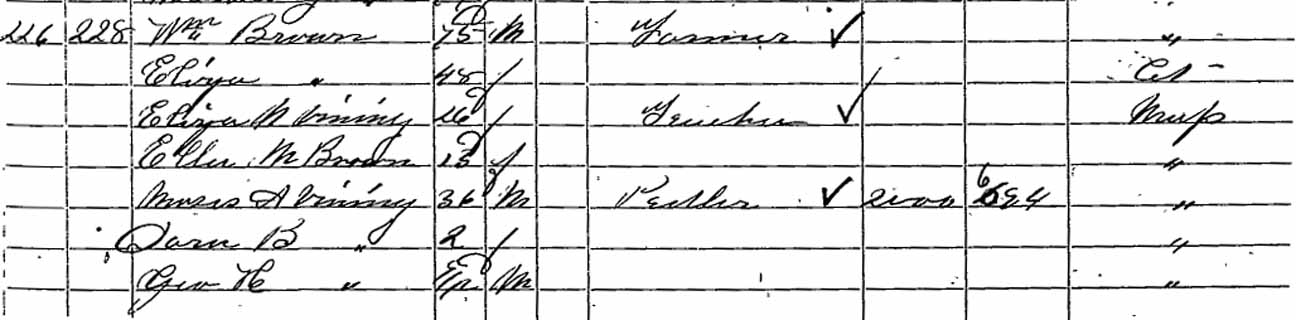 226 228 Wm Brown 75 M Farmer ✓ "
Eliza " 48 f Ct -
Eliza M Vining 26 f Teacher ✓ Mass
Ellen M Brown 15 f "
Moses A Vining 36 M Pedler ✓ 2000 694 "
Sara B " 2 f "
Geo H " M "